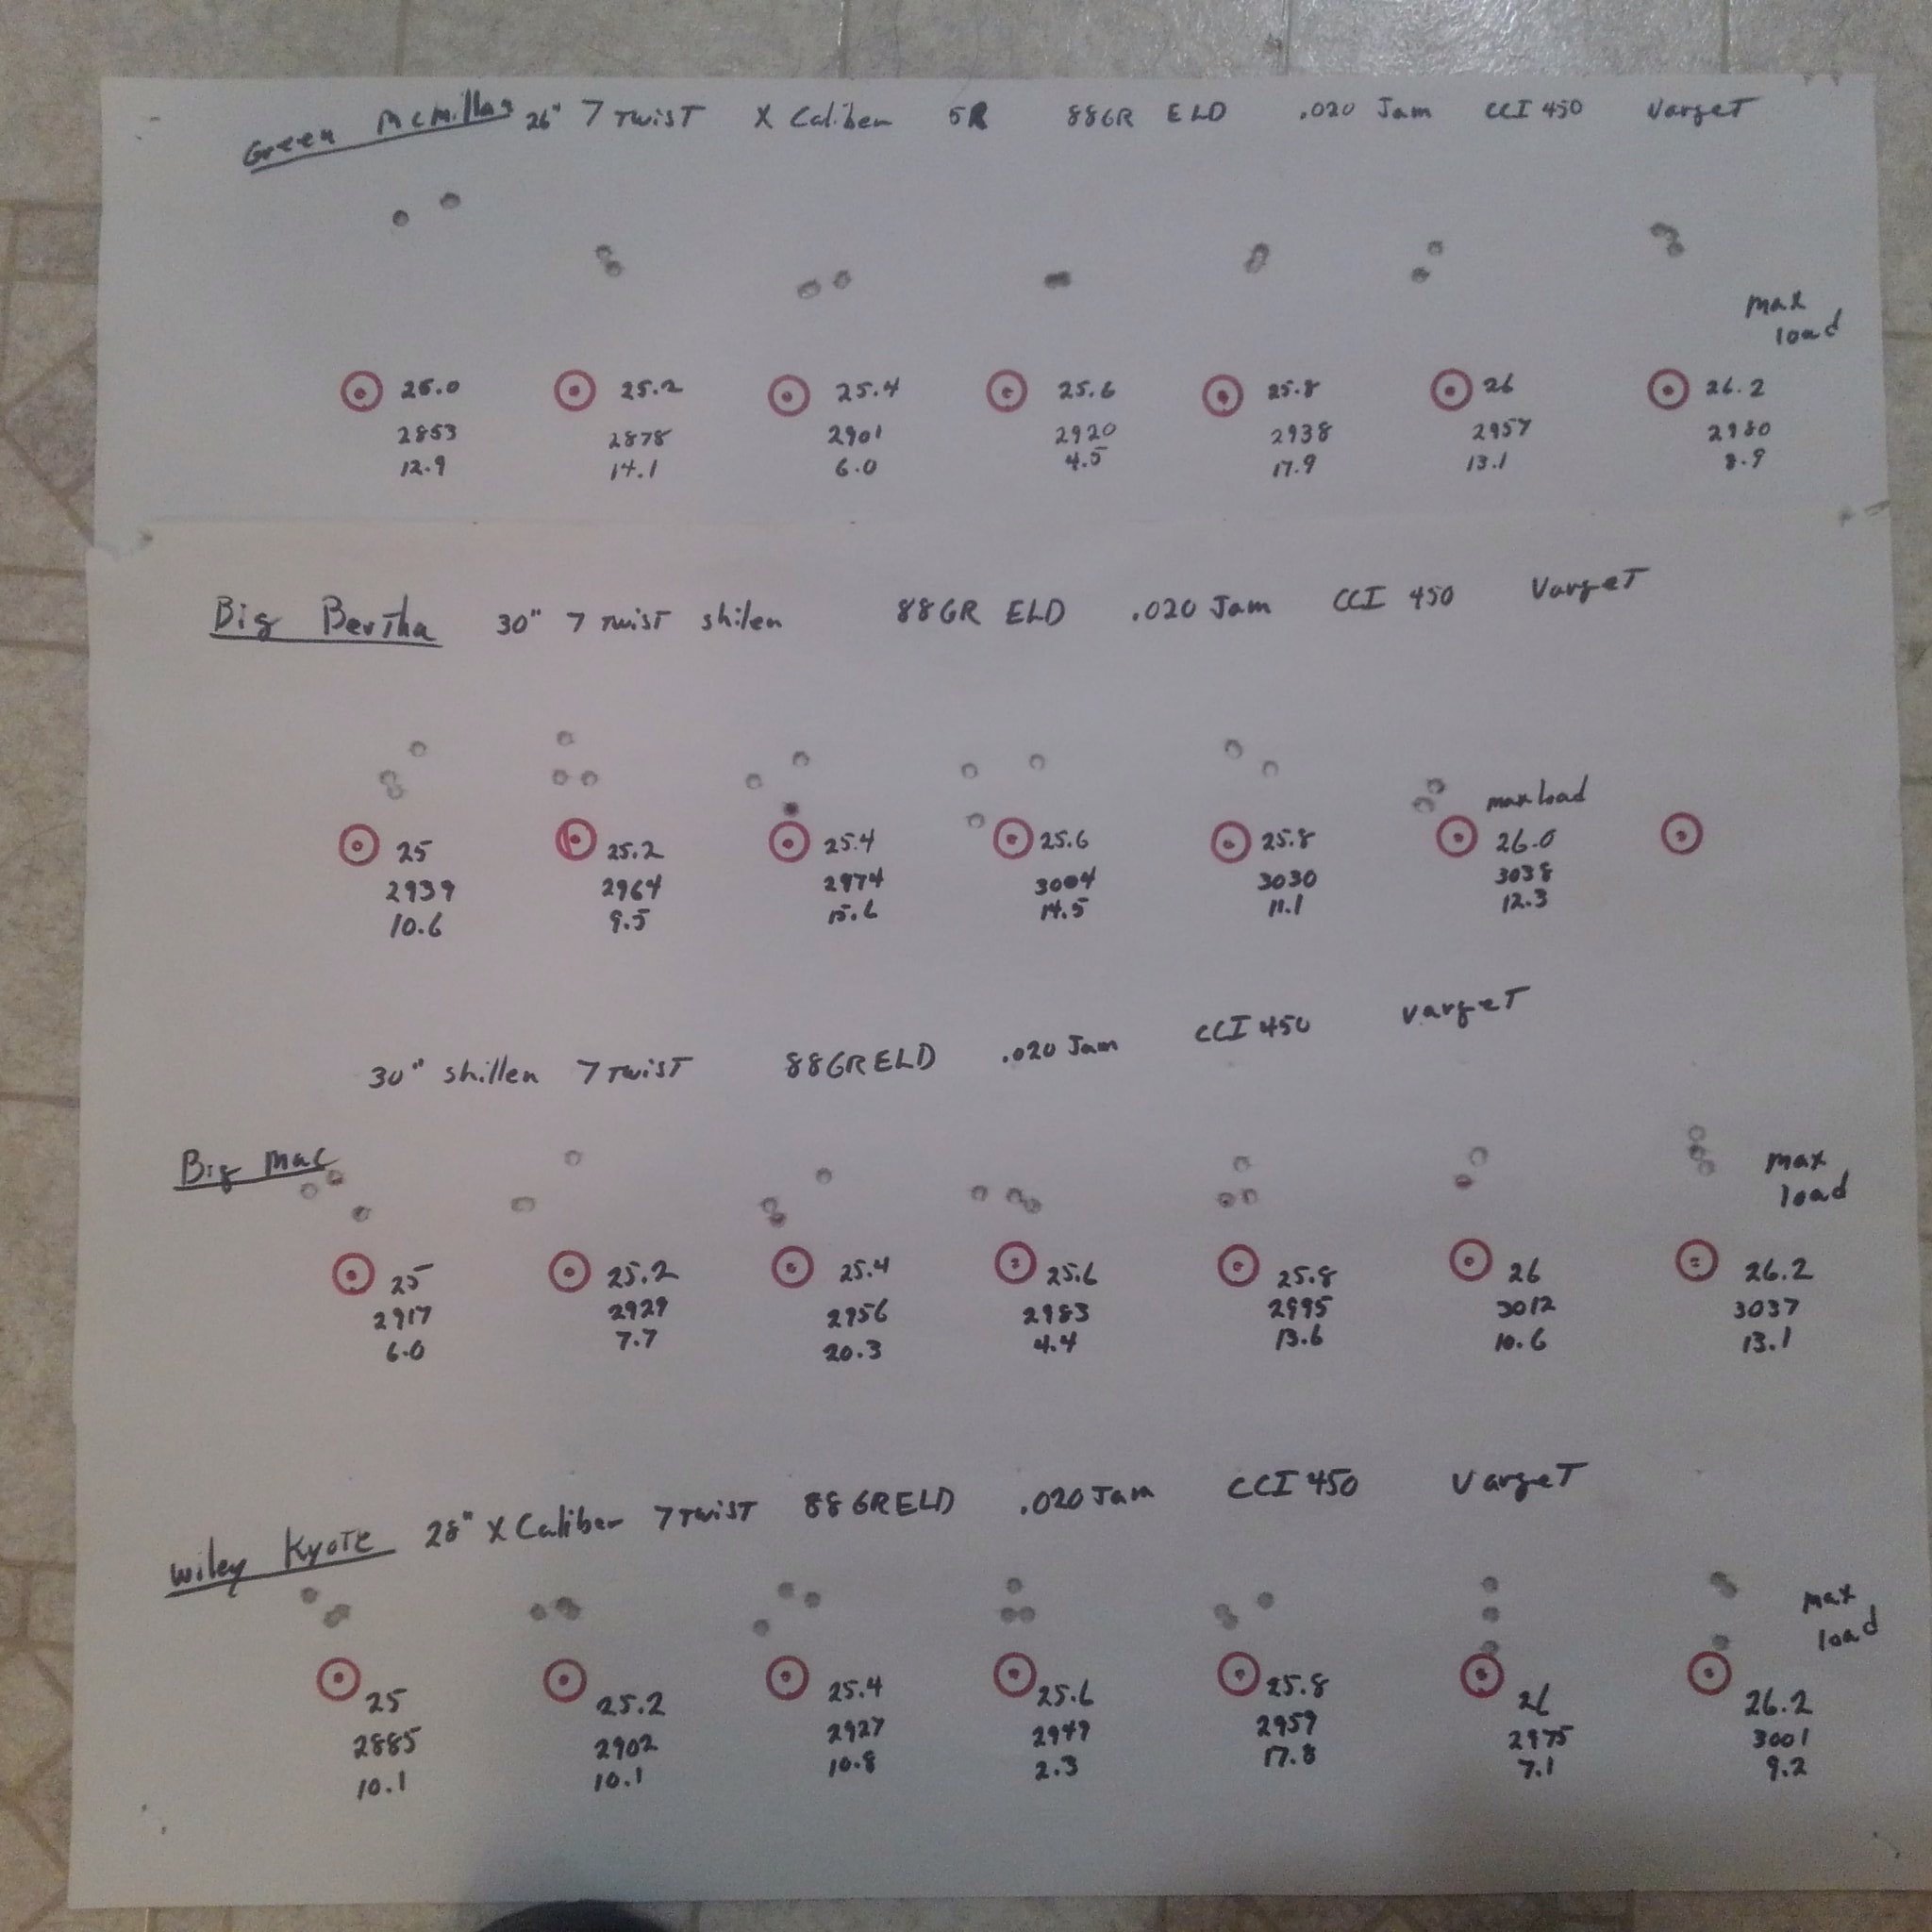 Green McMillan 26" 7 TwisT X Caliber 5R 88GR ELD .020 Jam CCI 450 VargeT
max
load
25.0 25.2 25.4 25.6 25.8 26 26.2
2853 2878 2901 2920 2938 2957 2980
12.9 14.1 6.0 4.5 17.9 13.1 8.9
Big Bertha 30" 7 TwisT shilen 88GR ELD .020 Jam CCI 450 VargeT
max load
25 25.2 25.4 25.6 25.8 26.0
2939 2964 2974 3004 3030 3038
10.6 9.5 15.6 14.5 11.1 12.3
30" shillen 7 TwisT 88GR ELD .020 Jam CCI 450 VargeT
Big Mac
max
load
25 25.2 25.4 25.6 25.8 26 26.2
2917 2929 2956 2983 2995 3012 3037
6.0 7.7 20.3 4.4 13.6 10.6 13.1
Wiley KyoTe 28" X Caliber 7 TwisT 88 GR ELD .020 Jam CCI 450 VargeT
max
load
25 25.2 25.4 25.6 25.8 26 26.2
2885 2902 2927 2949 2959 2975 3001
10.1 10.1 10.8 2.3 17.8 7.1 9.2